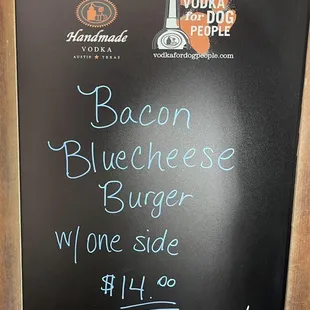 Handmade
VODKA
AUSTIN ★ TEXAS
VODKA
for DOG
PEOPLE
vodkafordogpeople.com
Bacon
Bluecheese
Burger
w/ one side
$14.00